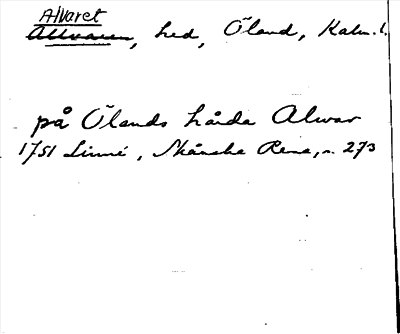 Alvaret
Allvaren, hed, Öland, Kalm. l.
på Ölands hårda Alwar
1751 Linné, Skånska Resa, s. 273